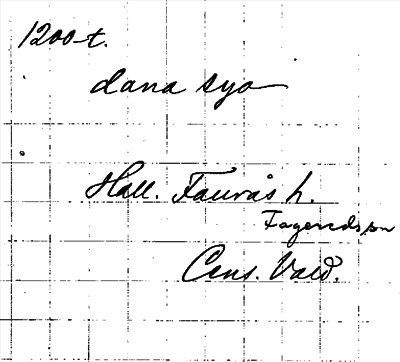 1200-t.
dana sya
Hall. Faurås h.
Fagereds sn
Cens. Vald.